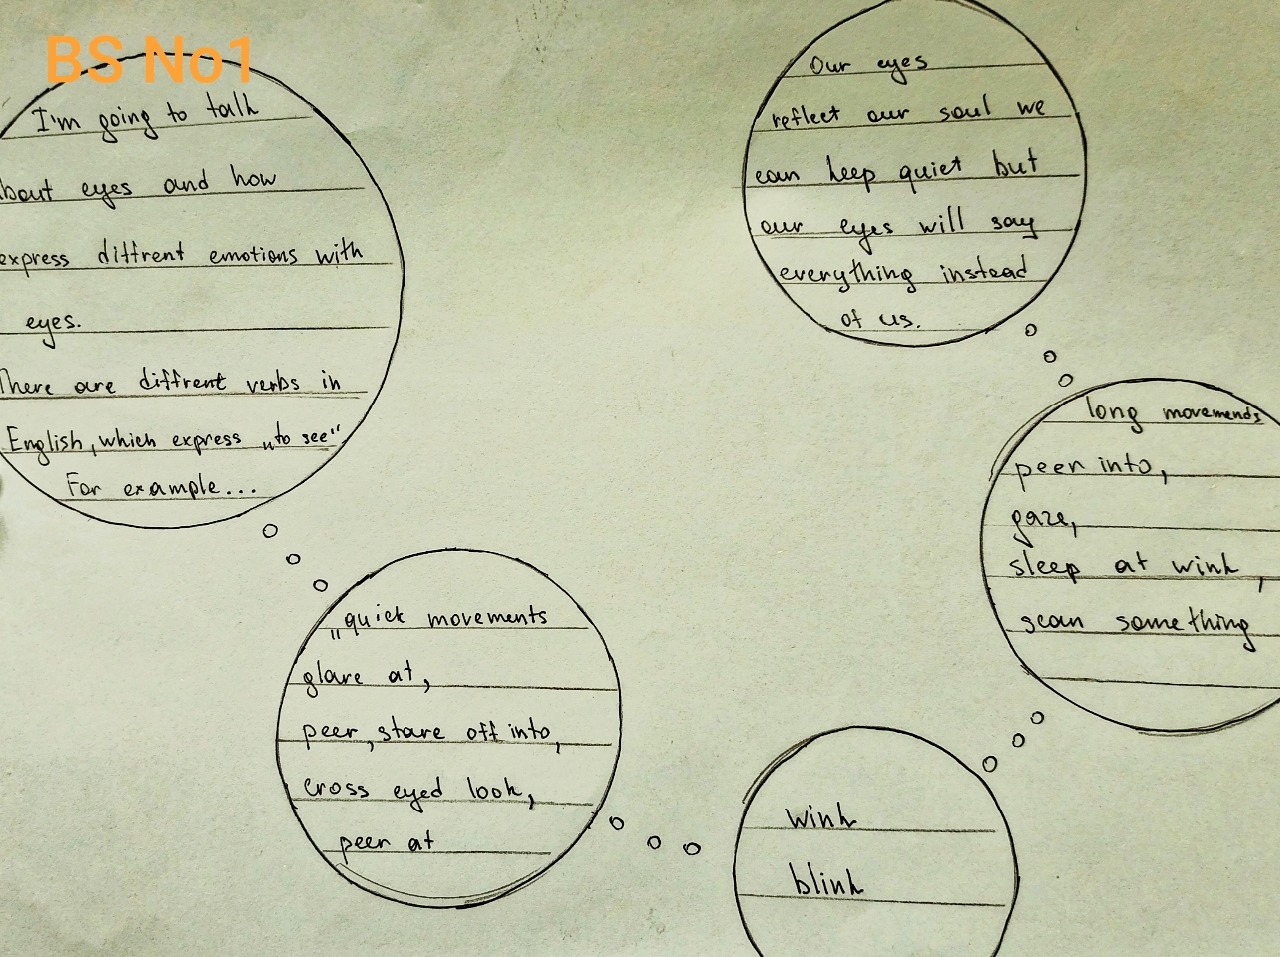 BS No1
I'm going to talk
about eyes and how
express diffrent emotions with
eyes.
There are diffrent verbs in
English, which express „to see"
For example...
„quick movements
glare at,
peer, stare off into,
cross eyed look,
peer at
wink
blink
long movemends
peer into,
gaze,
sleep at wink,
scan something
Our eyes
reflect our soul we
can keep quiet but
our eyes will say
everything instead
of us.